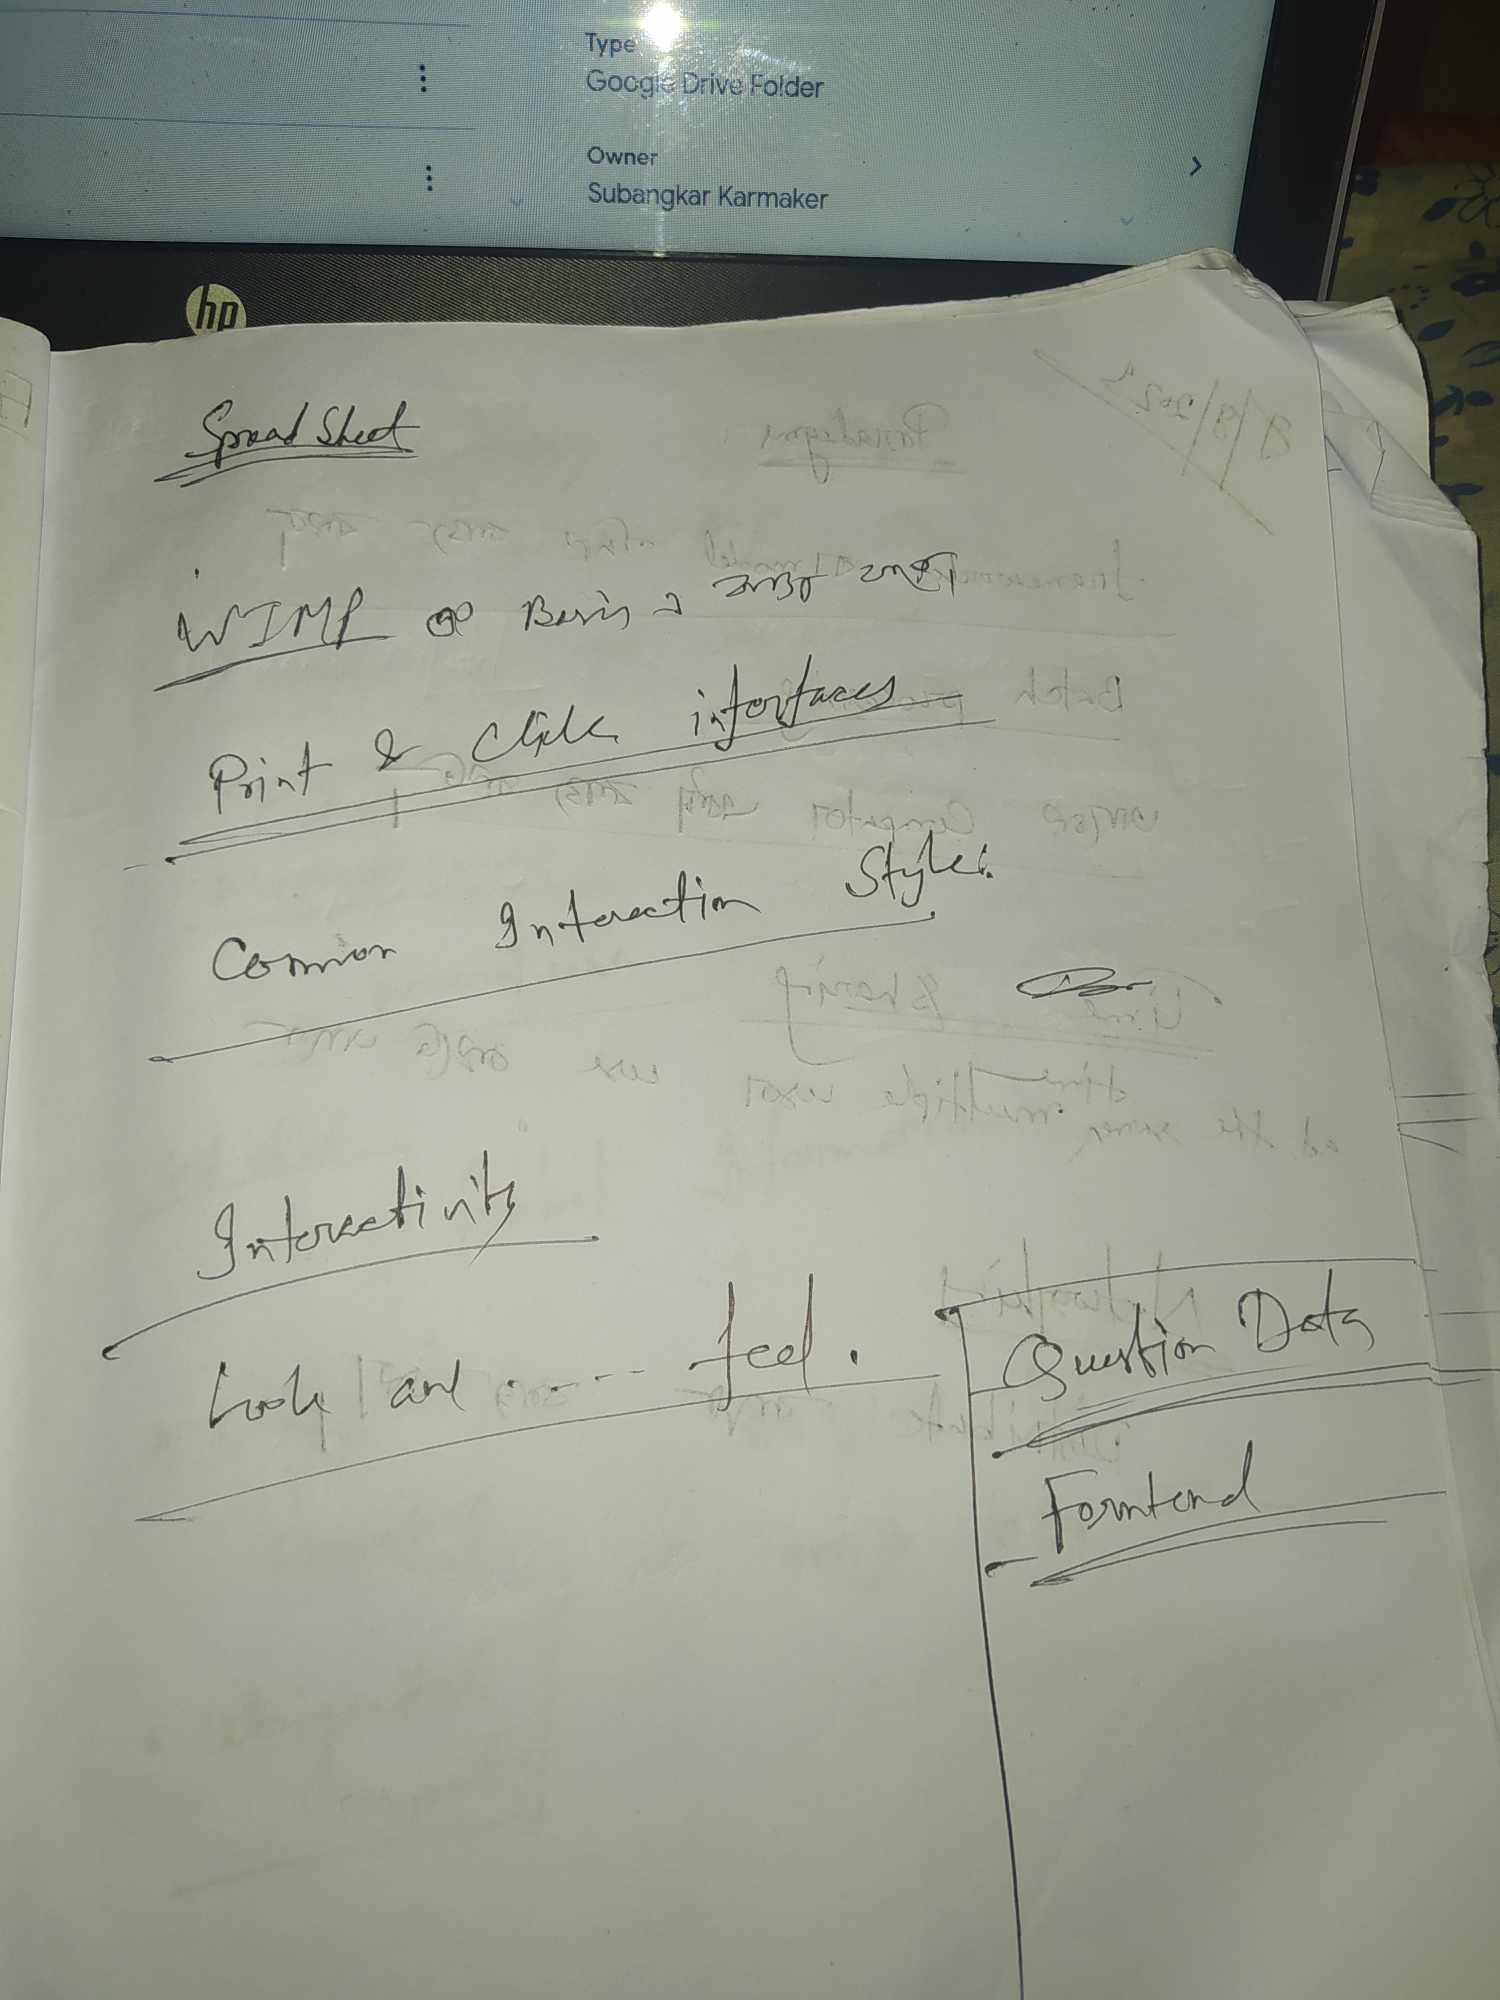 Type
Google Drive Folder
Owner
Subangkar Karmaker
hp
Spread Sheet
WIMP এর Basis এ
Print & Click interfaces
Common Interaction Styles.
Interactivity
Look and ..... feel.
Question Data
Forntend